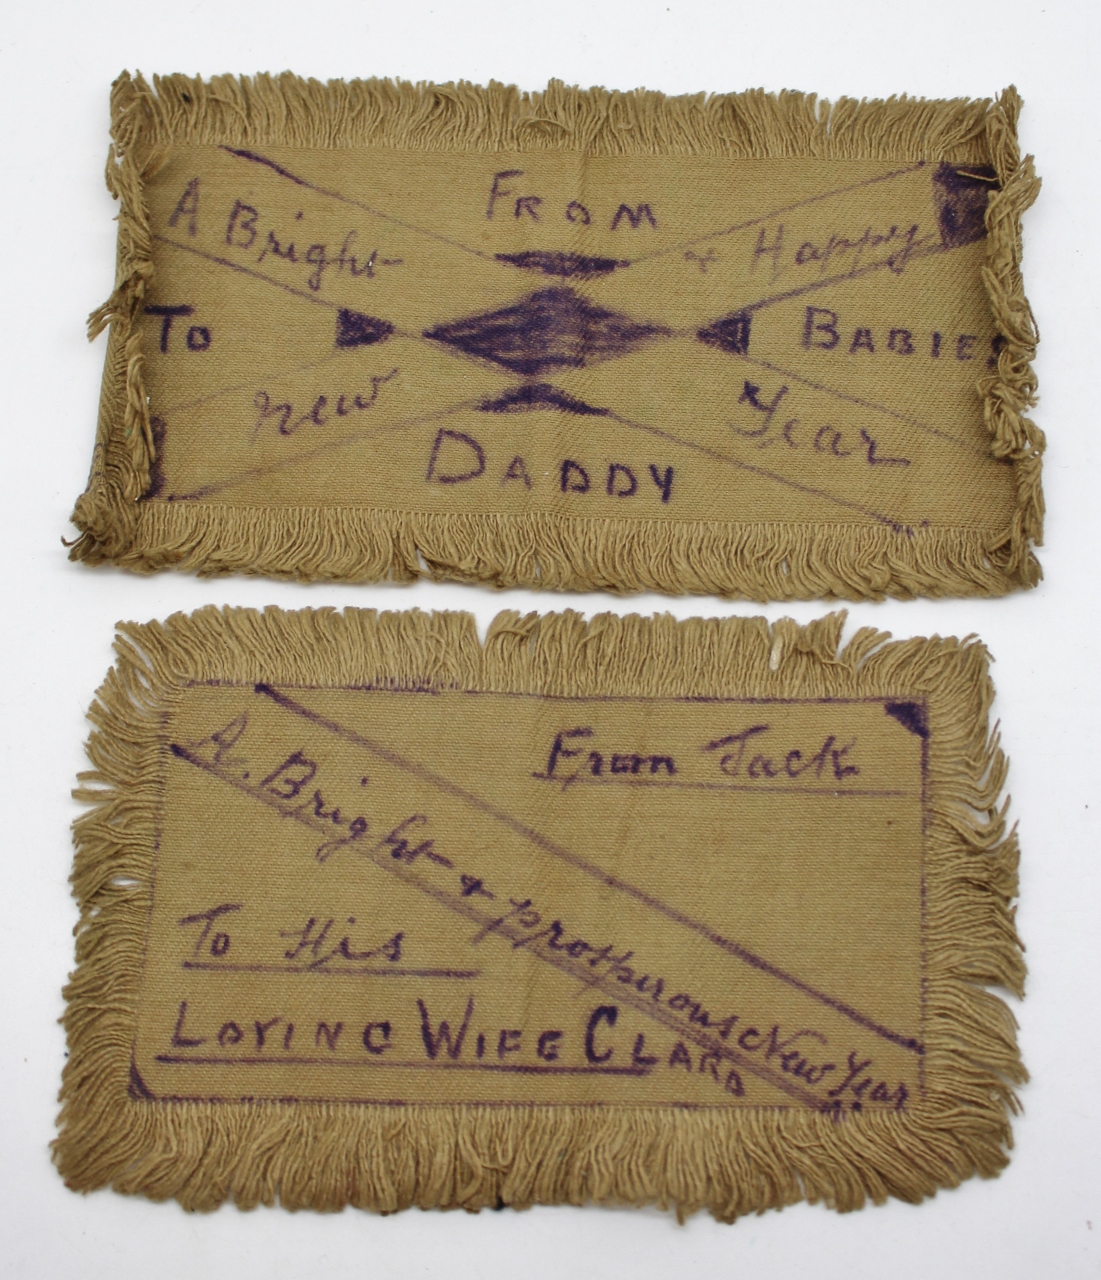 From
A Bright & Happy
To Babies
new Year
Daddy
From Jack
A. Bright & prosperous New Year
To His
Loving Wife Clara